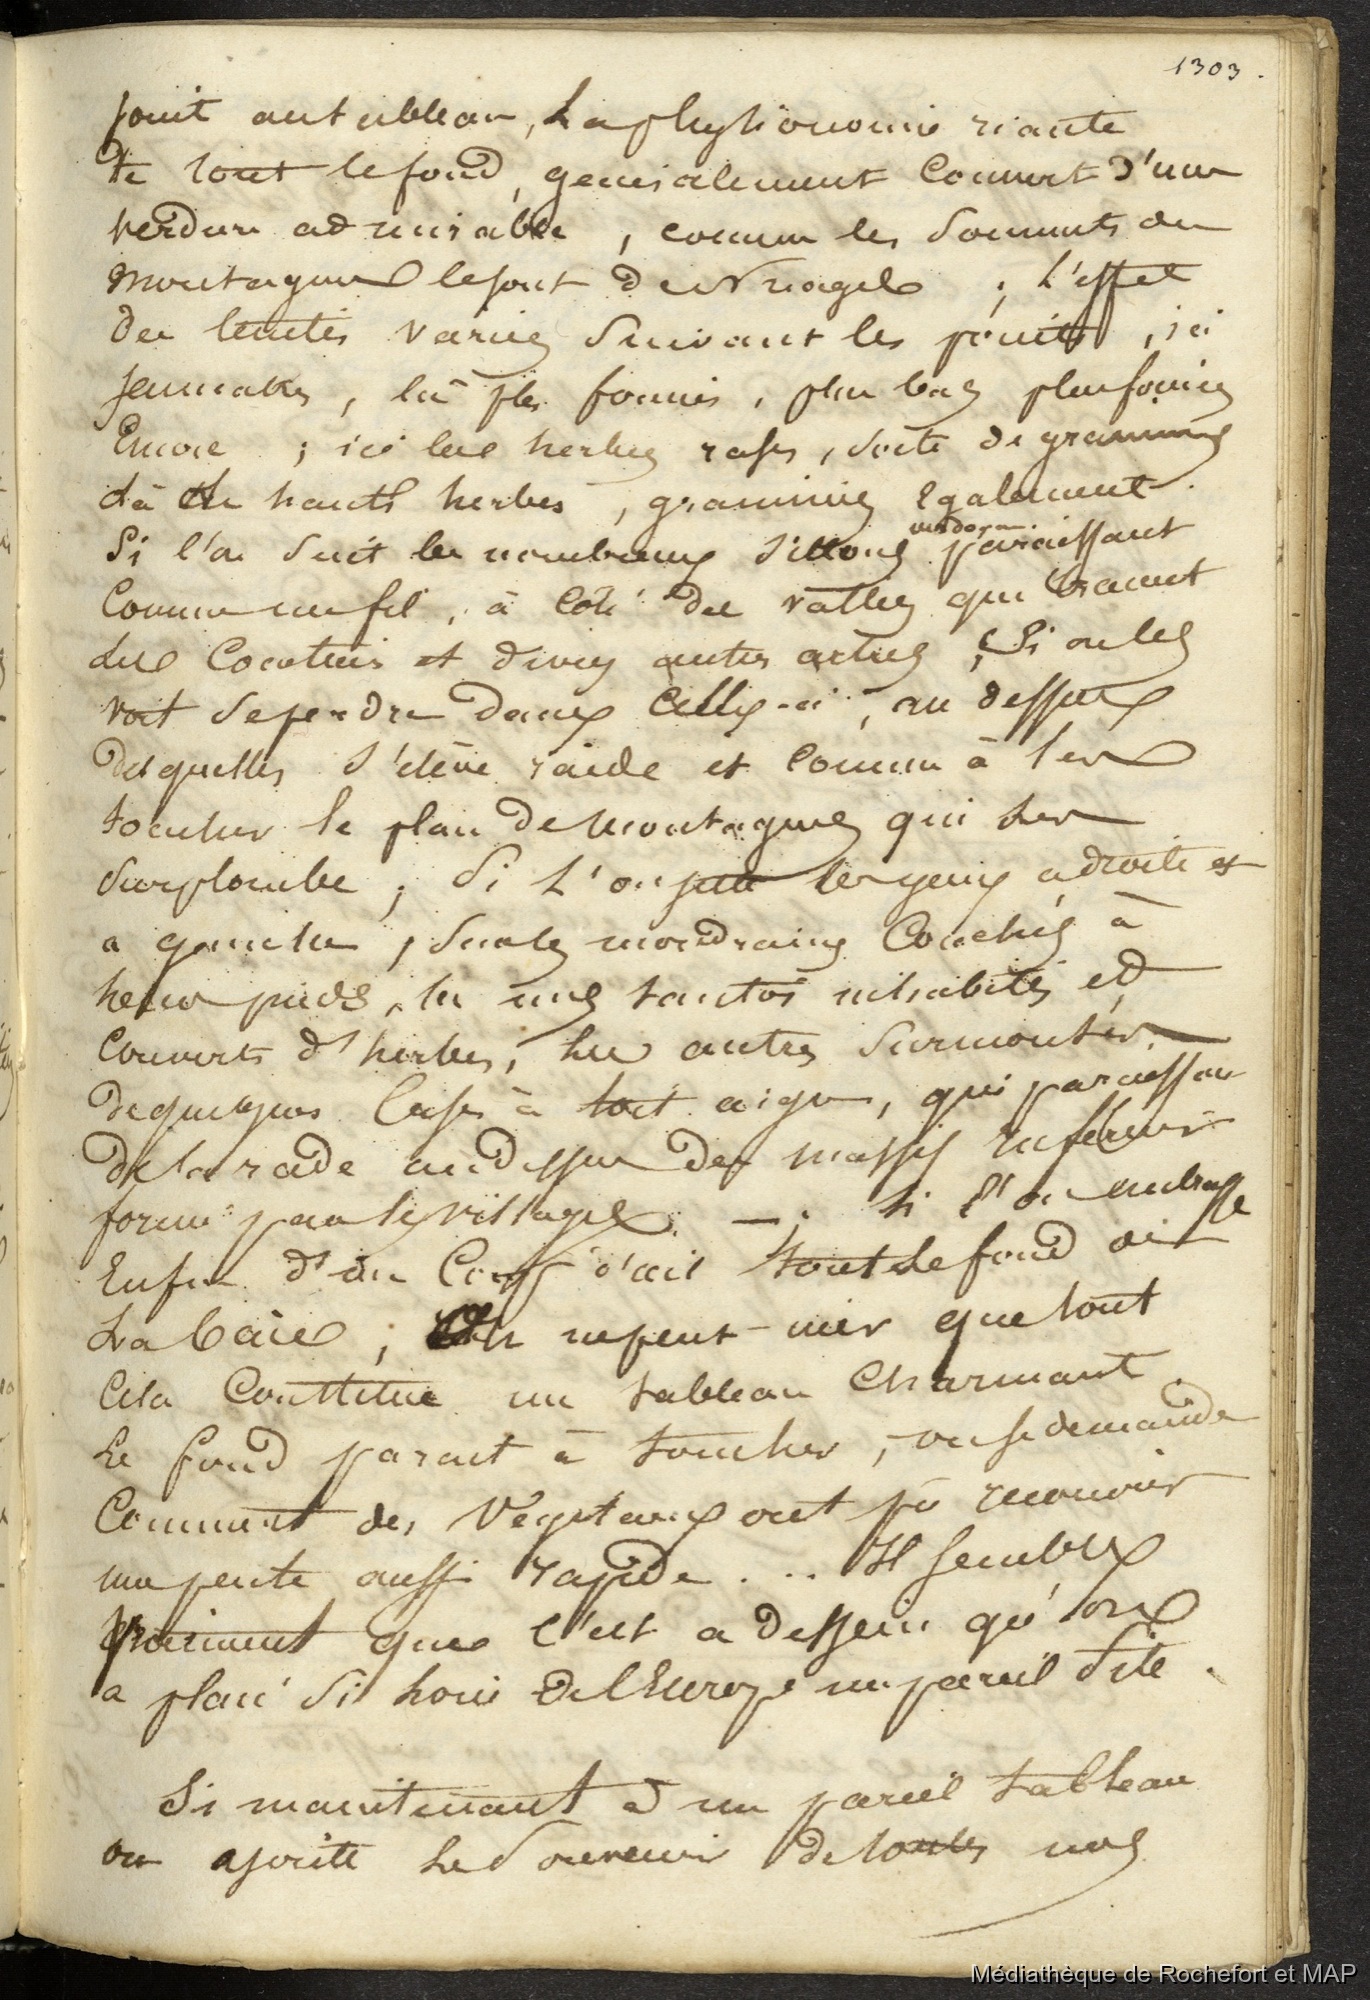 1303.
joint au tableau, la physionomie riante
de tout le fond, generalement couvert d'une
verdure admirable, comme les sommets des
montagnes le sont de nuages ; l'effet
des teintes variées suivant les points, ici
jaunatres, là plus foncées, plus bas plus foncées
Encore ; ici les herbes rases, sorte de graminées
là de hautes herbes, graminées également.
Si l'on suit les nombreux sillons verdoyans paraissant
comme un fil, à côté des vallées que tracent
des Cocotiers et divers autres arbres ; Si on les
voit se perdre dans celles-ci, au dessus
desquelles s'élève raide et comme à les
toucher le plan de montagnes qui les
surplombe ; Si l'on jette les yeux a droite et
a gauche, sur les mondrains couchés à
leurs pieds, les uns tantôt inhabités et
couverts d'herbes, les autres surmontés
de quelques cases à toit aigu, qui paraissent
de la rade au dessus des massifs inférieurs
formés par les villages. — ; si l'on embrasse
Enfin d'un coup d'œil tout le fond de
la baie ; on ne peut-nier que tout
cela constitue un tableau charmant.
Le fond parait à toucher, on se demande
Comment des végétaux ont pû recouvrir
une pente aussi rapide ... Il semble
vraiment que c'est a dessein qu'on
a placé si loin de l'Europe un pareil site.
Si maintenant à un pareil tableau
on ajoute le souvenir de toutes nos
Médiathèque de Rochefort et MAP